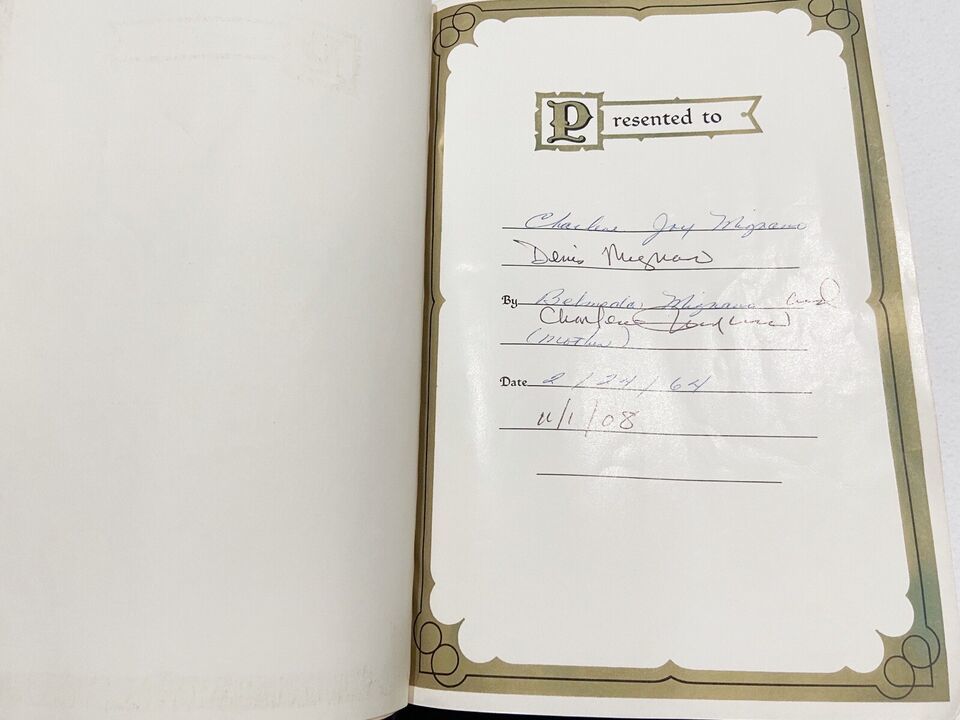 Presented to
Charlene Joy Mignano
Denis
By Belmeda Mignano and
Charlene
(Mother)
Date 2/24/64
11/1/08